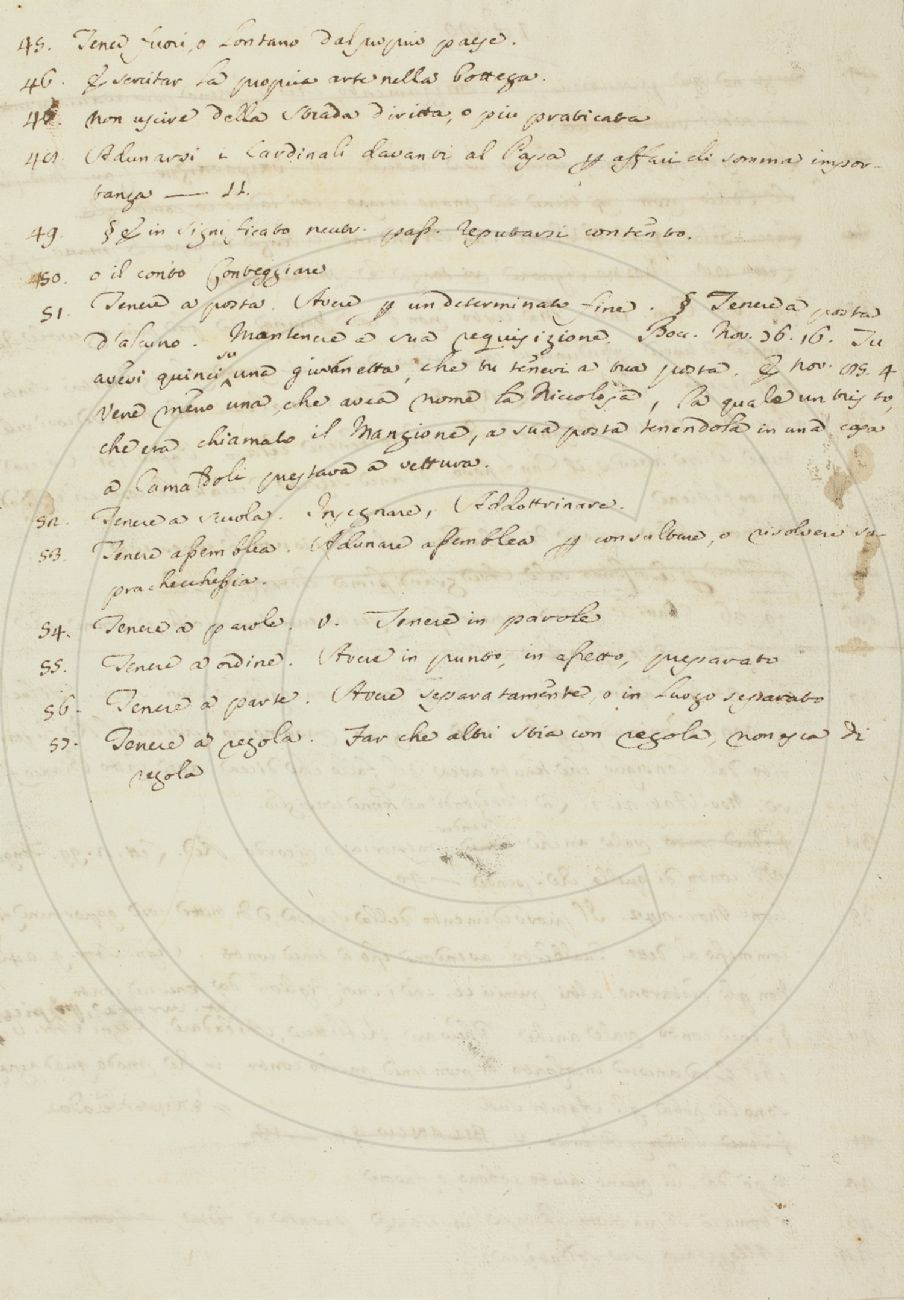 45. Tener fuori, o lontano dal proprio paese.
46. Esercitar la propria arte nella bottega.
47. non uscire della strada diritta, o più praticata
48. Adunarsi i Cardinali davanti al Papa p affari di somma impor-
tanza — 11.
49. § E in significato neutr. pass. reputarsi contento.
50. o il conto Conteggiare
51. Tenere a posta. Avere p un determinato fine. § Tenere a posta
d'alcuno. Mantenere a sua requisizione. Bocc. Nov. 36. 16. Tu
avevi quinci su una giovanetta, che tu tenevi a tua posta. E nov. 4
Vene meno una che avea nome la Niccolosa, la quale un tristo,
che era chiamato il Mangione, a sua posta tenendola in una casa
a Camaldoli prestava a vettura.
52. Tenere a scuola. Insegnare, Addottrinare.
53. Tenere assemblea. Adunare assemblea p consultare, o risolvere so-
pra checchessia.
54. Tenere a parole. v. Tenere in parole
55. Tenere a ordine. Avere in punto, in assetto, preparato
56. Tenere a parte. Avere separatamente, o in luogo separato
57. Tenere a regola. Far che altri stia con regola, non esca di
regola